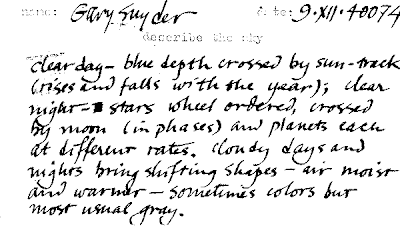 name: Gary Snyder date: 9.XII.40074
describe the sky
clear day – blue depth crossed by sun-track
(rises and falls with the year); clear
night – stars wheel ordered, crossed
by moon (in phases) and planets each
at different rates. Cloudy days and
nights bring shifting shapes – air moist
and warmer – sometimes colors but
most usual gray.